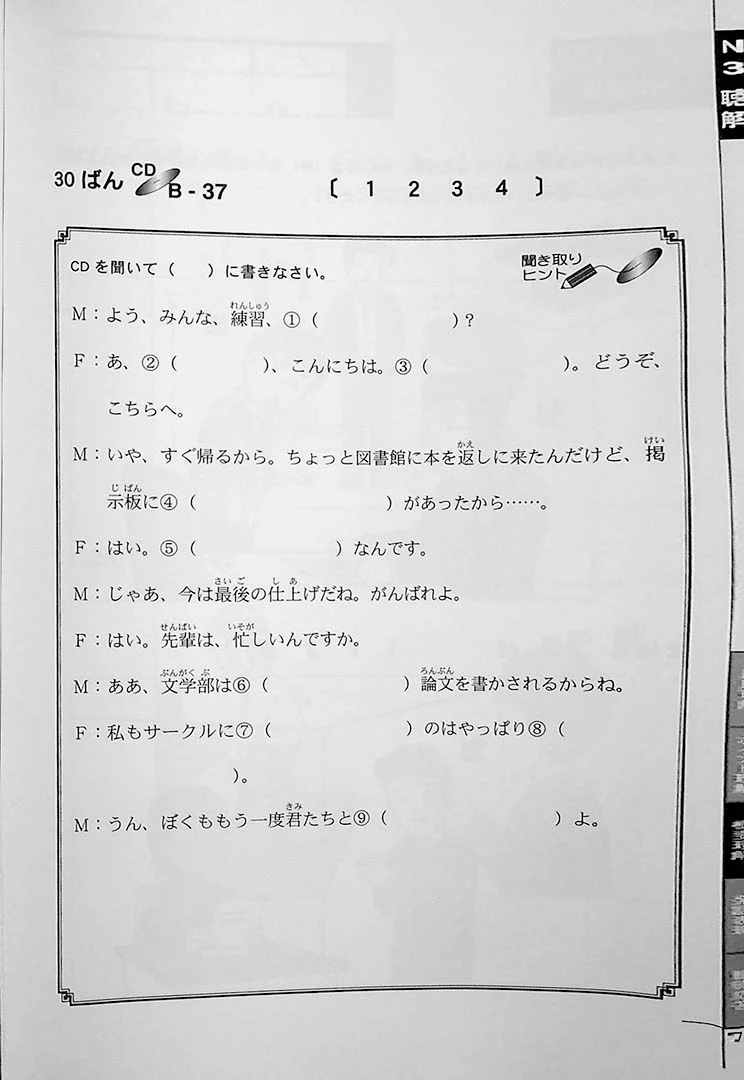 N3 聴解
30 ばん CD B - 37 〔 1 2 3 4 〕
CD を聞いて（ ）に書きなさい。
聞き取り
ヒント
M：よう、みんな、練習、①（ ）？
F：あ、②（ ）、こんにちは。③（ ）。どうぞ、
こちらへ。
M：いや、すぐ帰るから。ちょっと図書館に本を返しに来たんだけど、掲
示板に④（ ）があったから……。
F：はい。⑤（ ）なんです。
M：じゃあ、今は最後の仕上げだね。がんばれよ。
F：はい。先輩は、忙しいんですか。
M：ああ、文学部は⑥（ ）論文を書かされるからね。
F：私もサークルに⑦（ ）のはやっぱり⑧（
）。
M：うん、ぼくももう一度君たちと⑨（ ）よ。